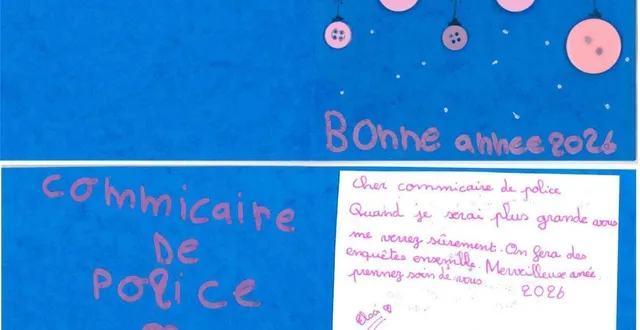 Bonne annee 2026
commicaire
De
Police
cher commicaire de police
Quand je serai plus grande vous
me verrez sûrement. On fera des
enquêtes ensemble. Merveilleuse année
prennez soin de vous. 2026